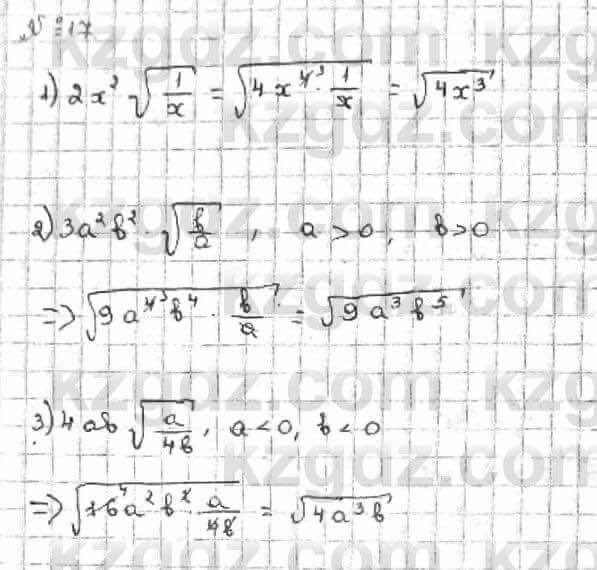 № 17
1) 2x² √(1/x) = √(4x⁴³ · 1/x) = √(4x³)
2) 3a²b² · √(b/a), a > 0, b > 0
=> √(9a⁴³b⁴ · b/a) = √(9a³b⁵)
3) 4ab √(a/4b), a < 0, b < 0
=> √(16⁴a²b² · a/4b) = √(4a³b)
kzgdz.com
kzgdz.com
kzgdz.com
kzgdz.com
kzgdz.com